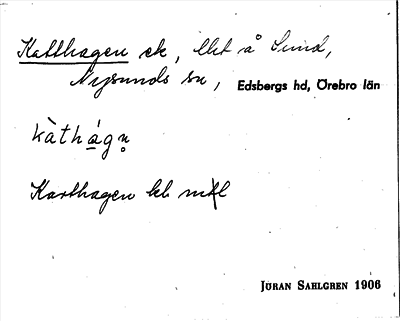 Katthagen ek, Utt å Sund,
Nysunds sn, Edsbergs hd, Örebro län
kàthág n̥
Karthagen kl mtl
JÖRAN SAHLGREN 1906